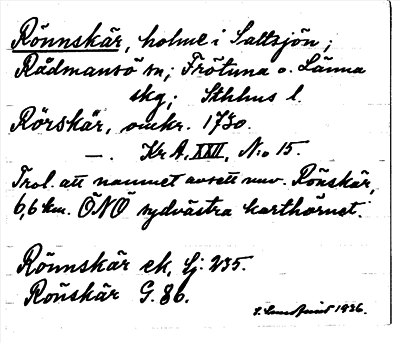 Rönnskär, holme i Saltsjön;
Rådmansö sn; Frötuna o. Länna
skg; Sthlms l.
Rörskär, omkr. 1730.
—. Kr A. XXII, No 15.
Trol. att namnet avsett nuv. Rönskär,
6,6 km. ÖNÖ sydvästra karthörnet.
Rönnskär ek, Lj: 235.
Rönskär G. 86.
1936.